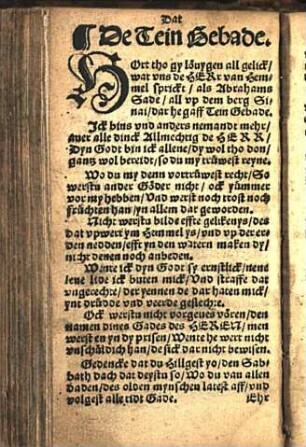 Dat
De Tein Gebade.
HOrt tho gy löuygen all gelick/
wat vns de HERr van Hem-
mel sprickt / als Abrahams
Sade / all vp dem berg Si-
nai / dar he gaff Tein Gebade.
Ick bins vnd anders nemandt mehr/
auer alle dinck Allmechtig de HERR/
Dyn Godt bin ick allene/dy wol tho don/
gantz wol bereidt/so du my trüwest reyne.
Wo du my denn vortrüwest recht/So
werstu ander Gÿder nicht / ock yümmer
vor my hebben/Vnd werst noch trost noch
früchten han/yn allem dat geworden.
Nicht werstu bilde effte gelikenys/des
dat vpwert ym Hemmel ys/vnd vp der er
den nedden/efft yn den watern maken dy/
nicht denen noch anbeden.
Wente ick dyn Godt sy ernstlick/nene
lene lide ick buten mick/Vnd straffe dat
vngerechte/der yennen de dar haten mick/
ynt drüdde vnd veerde geslechte.
Ock werstu nicht vorgeues vören/den
namen dines Gades des HEREN/men
werst en yn dy prisen/Wente he wert nicht
vnschüldich han/de sick dar nicht bewisen.
Gedencke dat du Hilligest yo/den Sab
bath dach dat deystu so/Wo du van allen
baden/des olden mynschen latest aff/vnd
volgest alle tidt Gade.
Ehr